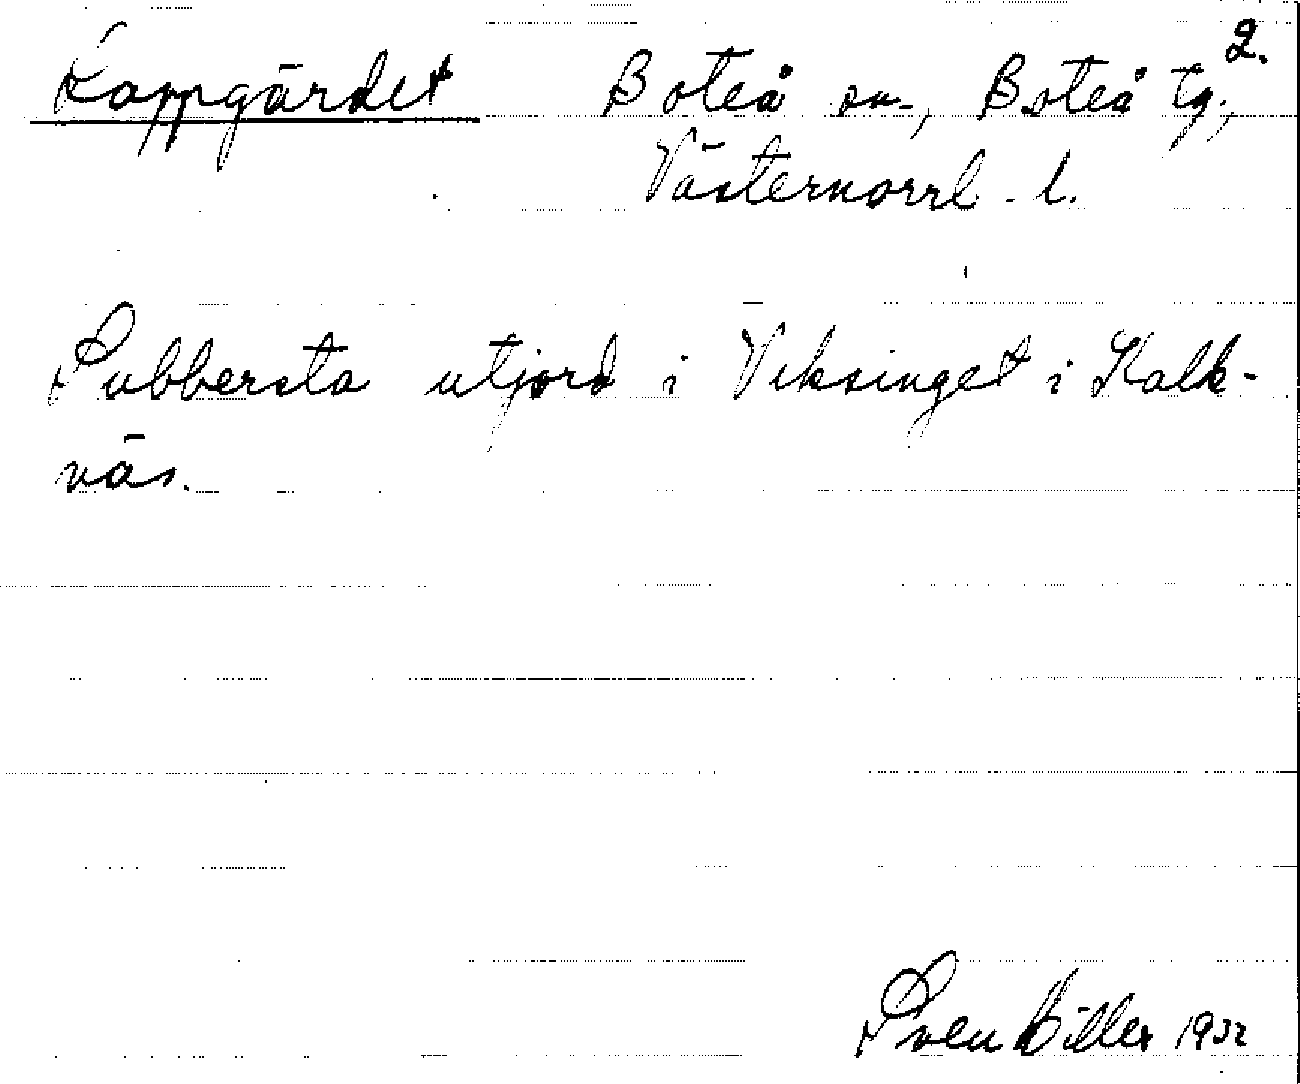 2.
Lappgärdet Boteå sn., Boteå tg.,
Västernorrl. l.
Subbersta utjord i Viksinget i Kalk-
näs.
Sven Hiller 1932